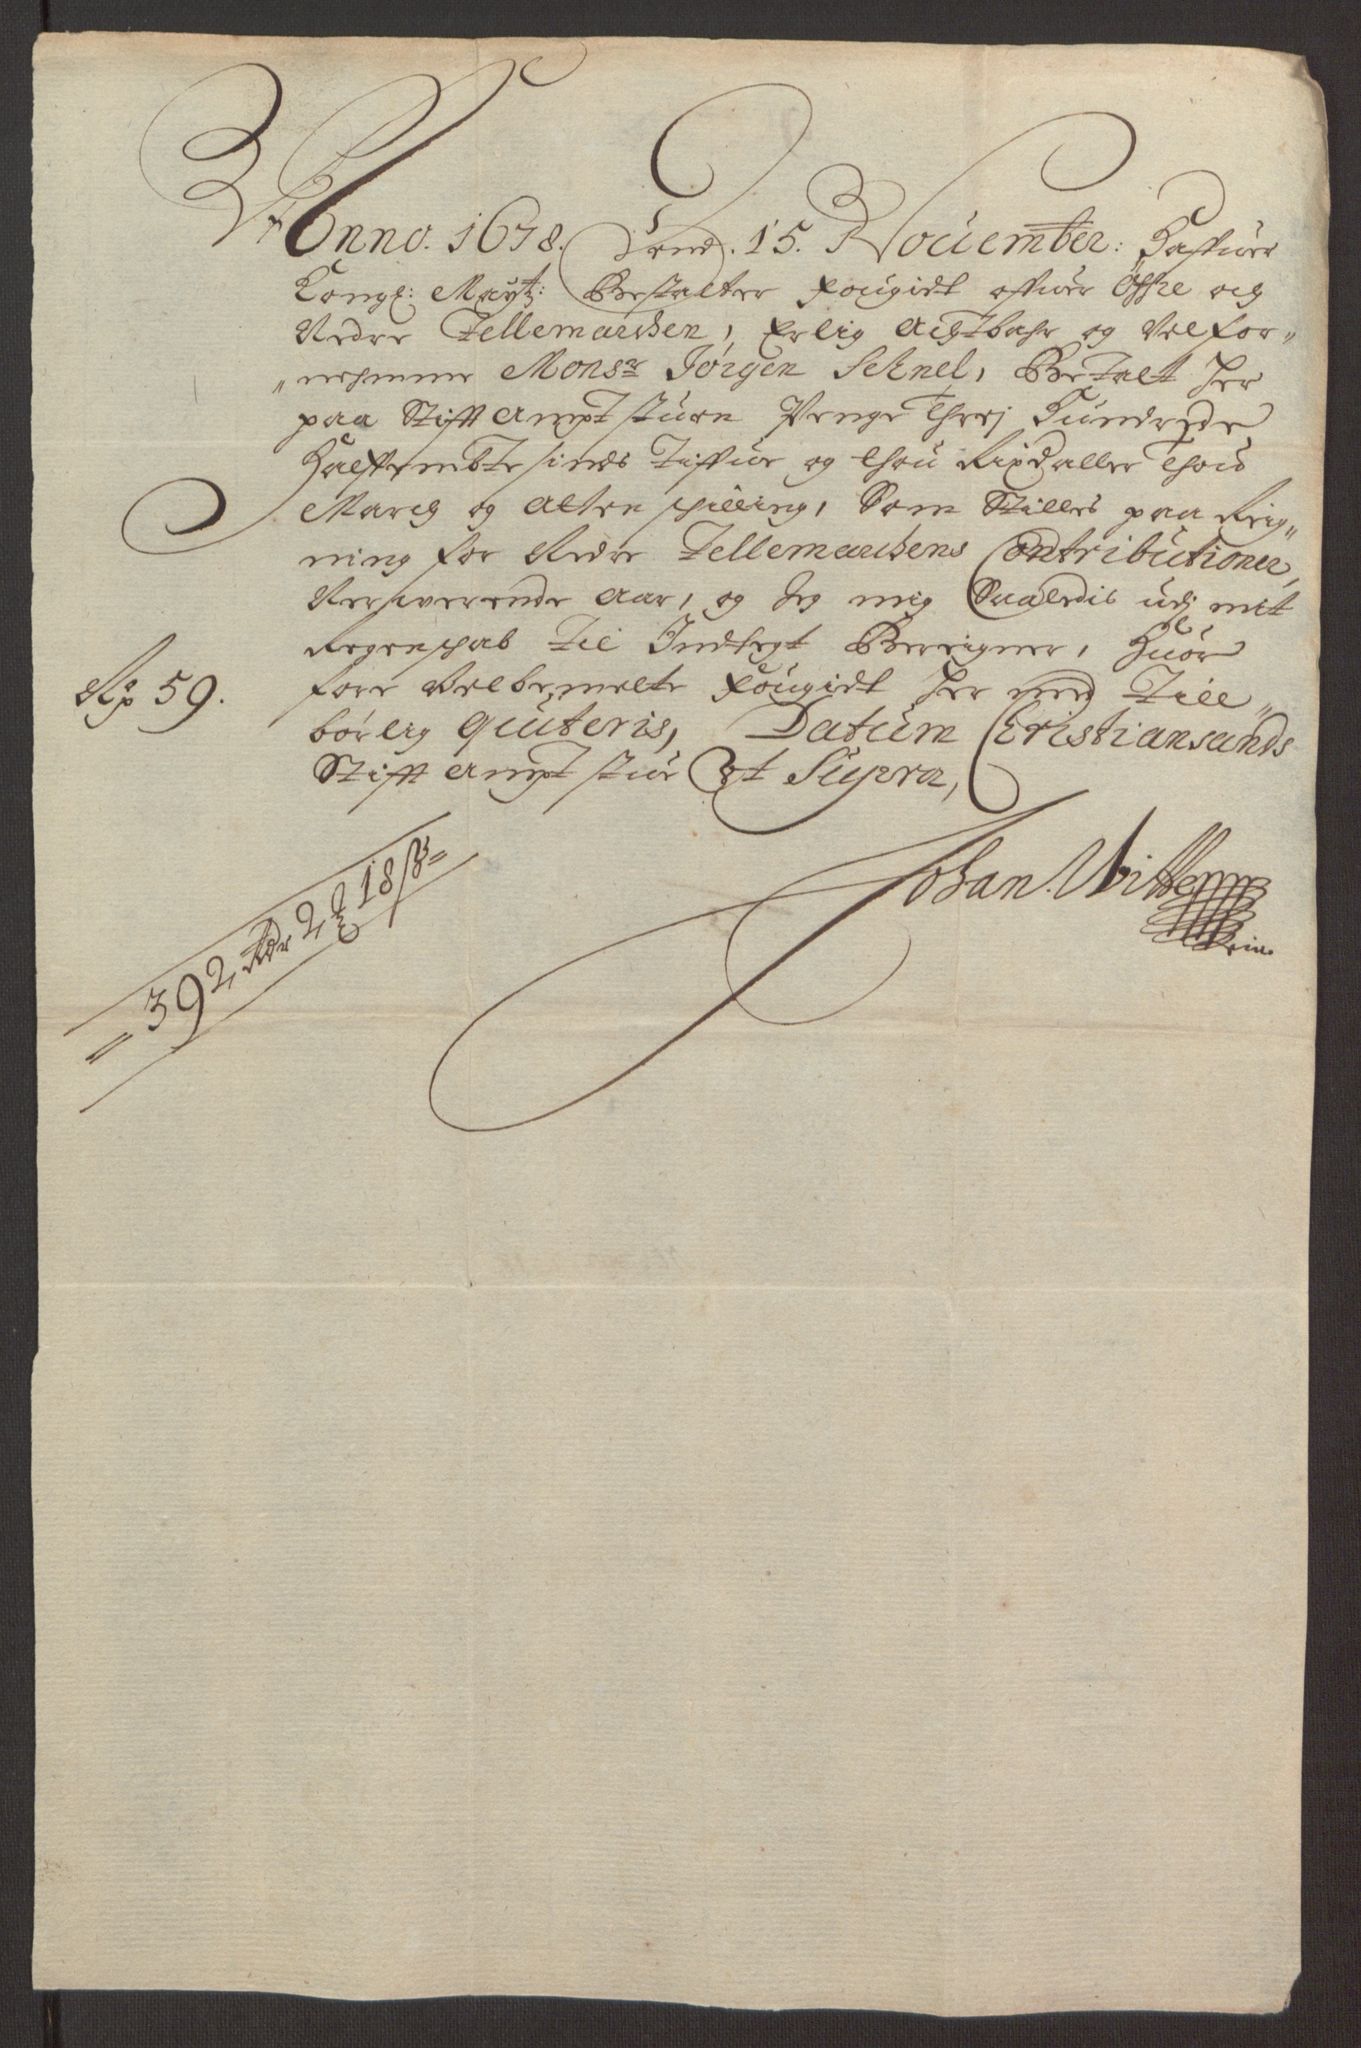 Anno. 1678. Dend. 15. November: Haffuer
Kongl: Maytz: Bestalter Fougidt offuer Øffre og
Nedre Tellemarchen, Erlig Achtbahr og Velfor„
„nehmme Monsr Jørgen Schnel, Betalt her
paa Stifft Ampt stuen Penge Threj Hundrede
Halffembte sinds Tiffue og thou Rixdaller Thou
March og Atten schilling, Som Stilles paa Reig„
ning for Nedre Tellemarchens Contributioner,
Nerwerende Aar, og Jeg mig Saaledis udj mit
Regenschab Til Indtegt Bereigner, Huor
fore Velbemelte Fougidt her med Till„
børlig Quiteris, Datum Christiansands
Stifft Ampt stue Ut Supra,
No 59.
Johan Wittenn
= 392 Rdr 2 ₰ 18 ß =